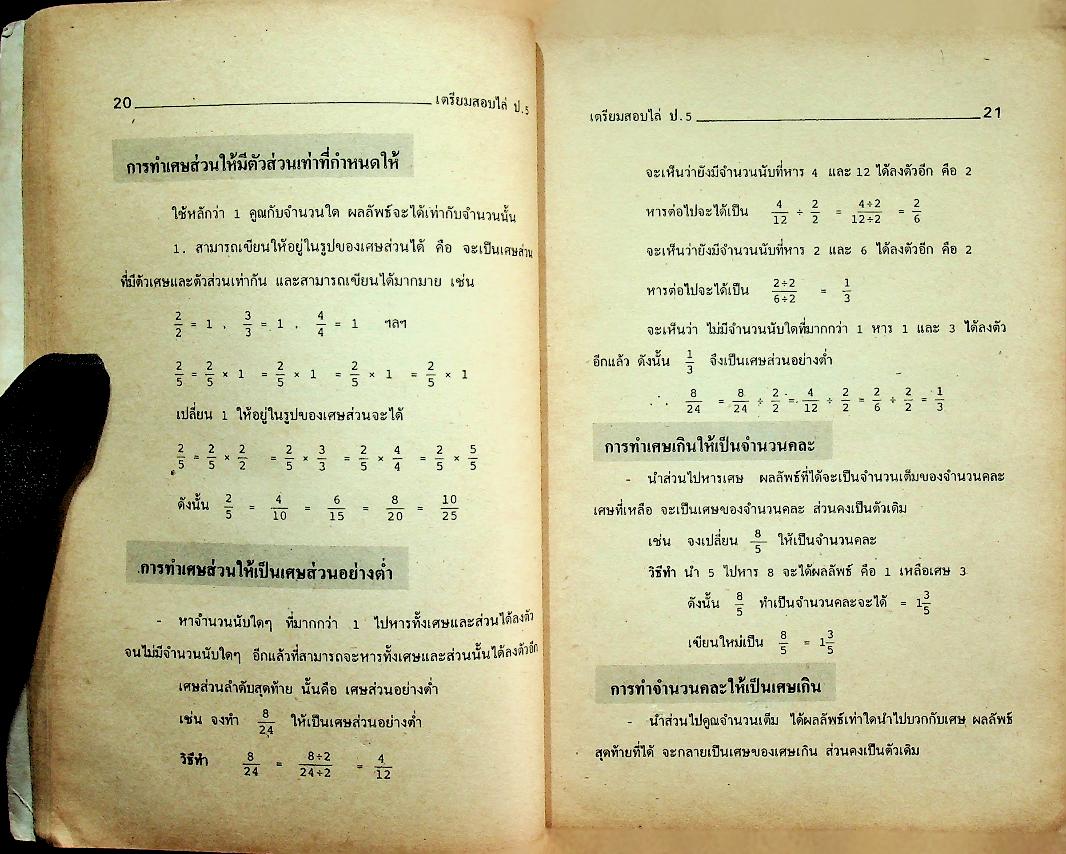 20 เตรียมสอบไล่ ป.5
การทำเศษส่วนให้มีตัวส่วนเท่าที่กำหนดให้
ใช้หลักว่า 1 คูณกับจำนวนใด ผลลัพธ์จะได้เท่ากับจำนวนนั้น
1. สามารถเขียนให้อยู่ในรูปของเศษส่วนได้ คือ จะเป็นเศษส่วน
ที่มีตัวเศษและตัวส่วนเท่ากัน และสามารถเขียนได้มากมาย เช่น
2/2 = 1 , 3/3 = 1 , 4/4 = 1 ฯลฯ
2/5 = 2/5 × 1 = 2/5 × 1 = 2/5 × 1 = 2/5 × 1
เปลี่ยน 1 ให้อยู่ในรูปของเศษส่วนจะได้
2/5 = 2/5 × 2/2 = 2/5 × 3/3 = 2/5 × 4/4 = 2/5 × 5/5
ดังนั้น 2/5 = 4/10 = 6/15 = 8/20 = 10/25
การทำเศษส่วนให้เป็นเศษส่วนอย่างต่ำ
- หาจำนวนนับใดๆ ที่มากกว่า 1 ไปหารทั้งเศษและส่วนได้ลงตัว
จนไม่มีจำนวนนับใดๆ อีกแล้วที่สามารถจะหารทั้งเศษและส่วนนั้นได้ลงตัวอีก
เศษส่วนลำดับสุดท้าย นั้นคือ เศษส่วนอย่างต่ำ
เช่น จงทำ 8/24 ให้เป็นเศษส่วนอย่างต่ำ
วิธีทำ 8/24 = 8÷2/24÷2 = 4/12
เตรียมสอบไล่ ป.5 21
จะเห็นว่ายังมีจำนวนนับที่หาร 4 และ 12 ได้ลงตัวอีก คือ 2
หารต่อไปจะได้เป็น 4/12 ÷ 2/2 = 4÷2/12÷2 = 2/6
จะเห็นว่ายังมีจำนวนนับที่หาร 2 และ 6 ได้ลงตัวอีก คือ 2
หารต่อไปจะได้เป็น 2÷2/6÷2 = 1/3
จะเห็นว่า ไม่มีจำนวนนับใดที่มากกว่า 1 หาร 1 และ 3 ได้ลงตัว
อีกแล้ว ดังนั้น 1/3 จึงเป็นเศษส่วนอย่างต่ำ
∴ 8/24 = 8/24 ÷ 2/2 = 4/12 ÷ 2/2 = 2/6 ÷ 2/2 = 1/3
การทำเศษเกินให้เป็นจำนวนคละ
- นำส่วนไปหารเศษ ผลลัพธ์ที่ได้จะเป็นจำนวนเต็มของจำนวนคละ
เศษที่เหลือ จะเป็นเศษของจำนวนคละ ส่วนคงเป็นตัวเดิม
เช่น จงเปลี่ยน 8/5 ให้เป็นจำนวนคละ
วิธีทำ นำ 5 ไปหาร 8 จะได้ผลลัพธ์ คือ 1 เหลือเศษ 3
ดังนั้น 8/5 ทำเป็นจำนวนคละจะได้ = 1 3/5
เขียนใหม่เป็น 8/5 = 1 3/5
การทำจำนวนคละให้เป็นเศษเกิน
- นำส่วนไปคูณจำนวนเต็ม ได้ผลลัพธ์เท่าใดนำไปบวกกับเศษ ผลลัพธ์
สุดท้ายที่ได้ จะกลายเป็นเศษของเศษเกิน ส่วนคงเป็นตัวเดิม